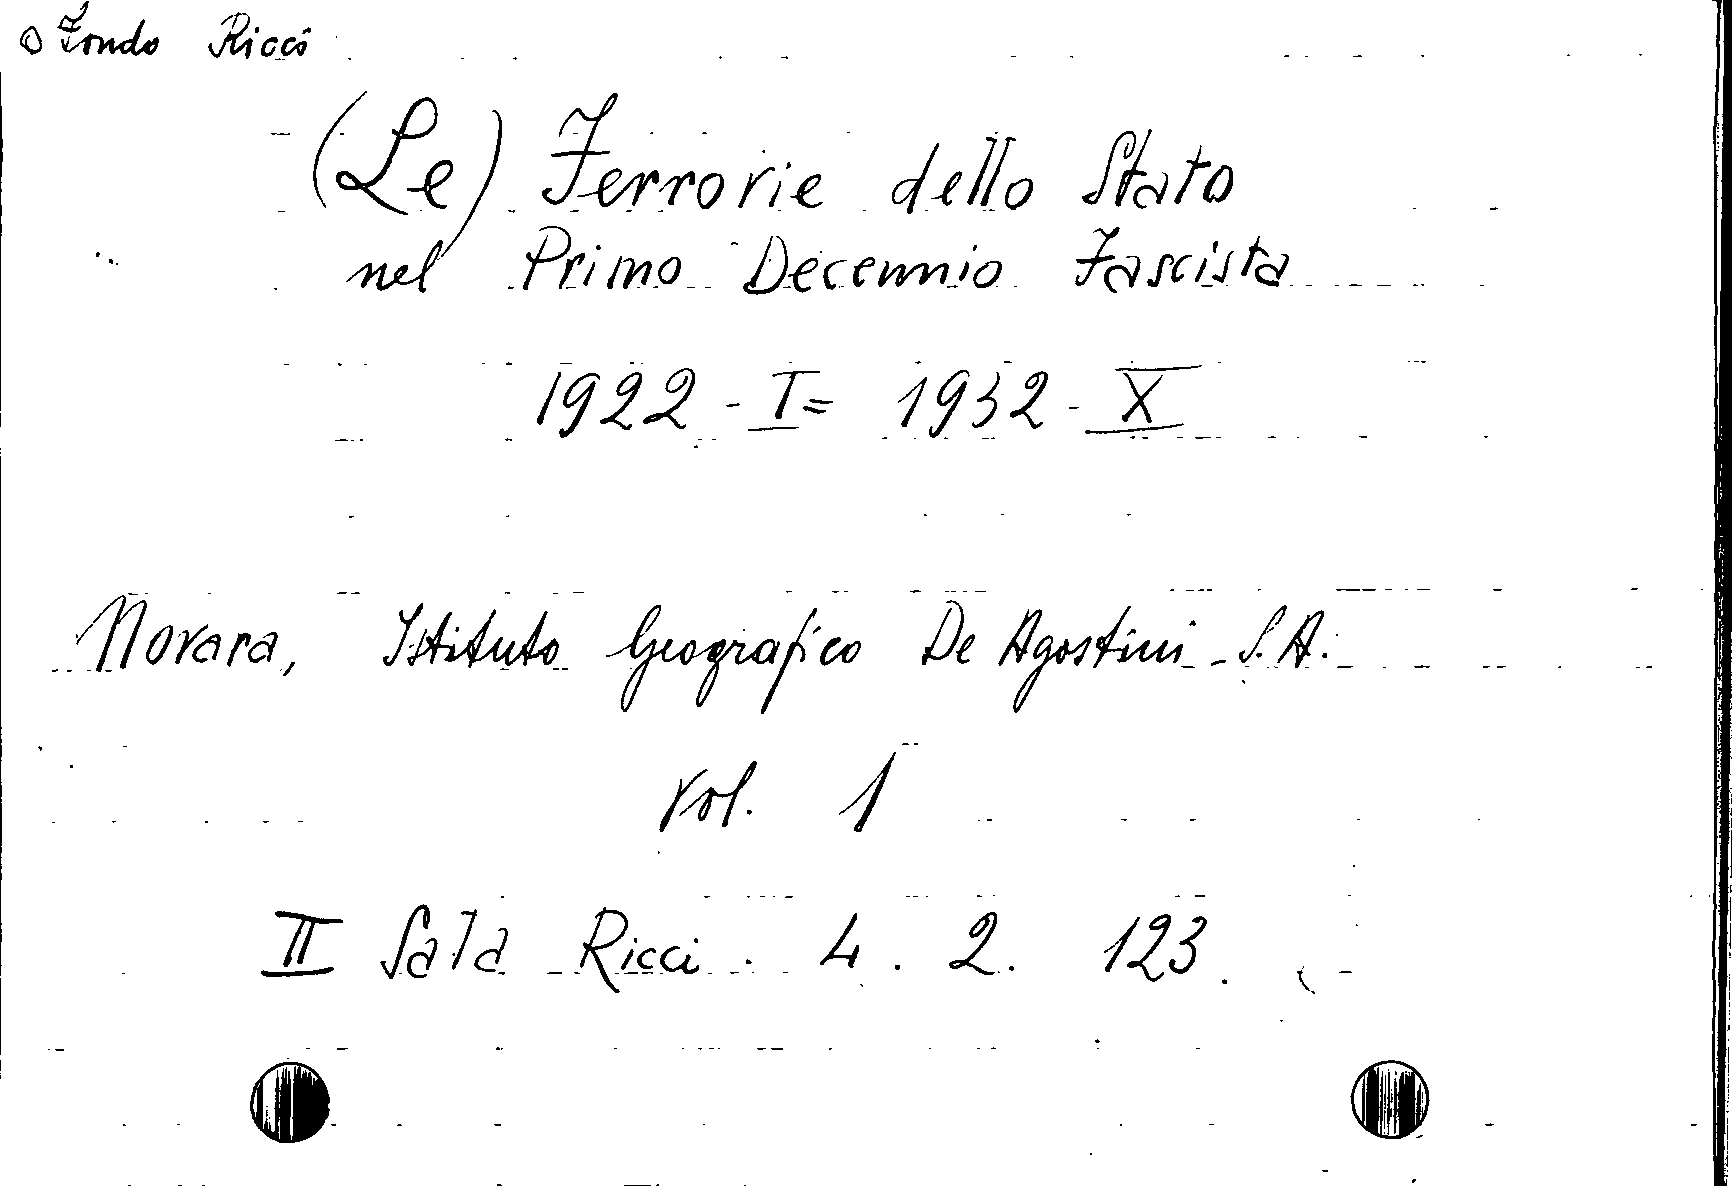 Fondo Ricci
(Le) Ferrovie dello Stato
nel Primo Decennio Fascista
1922 - I = 1932 - X
Novara, Istituto Geografico De Agostini - S. A.
Vol. 1
II Sala Ricci . 4 . 2 . 123 .